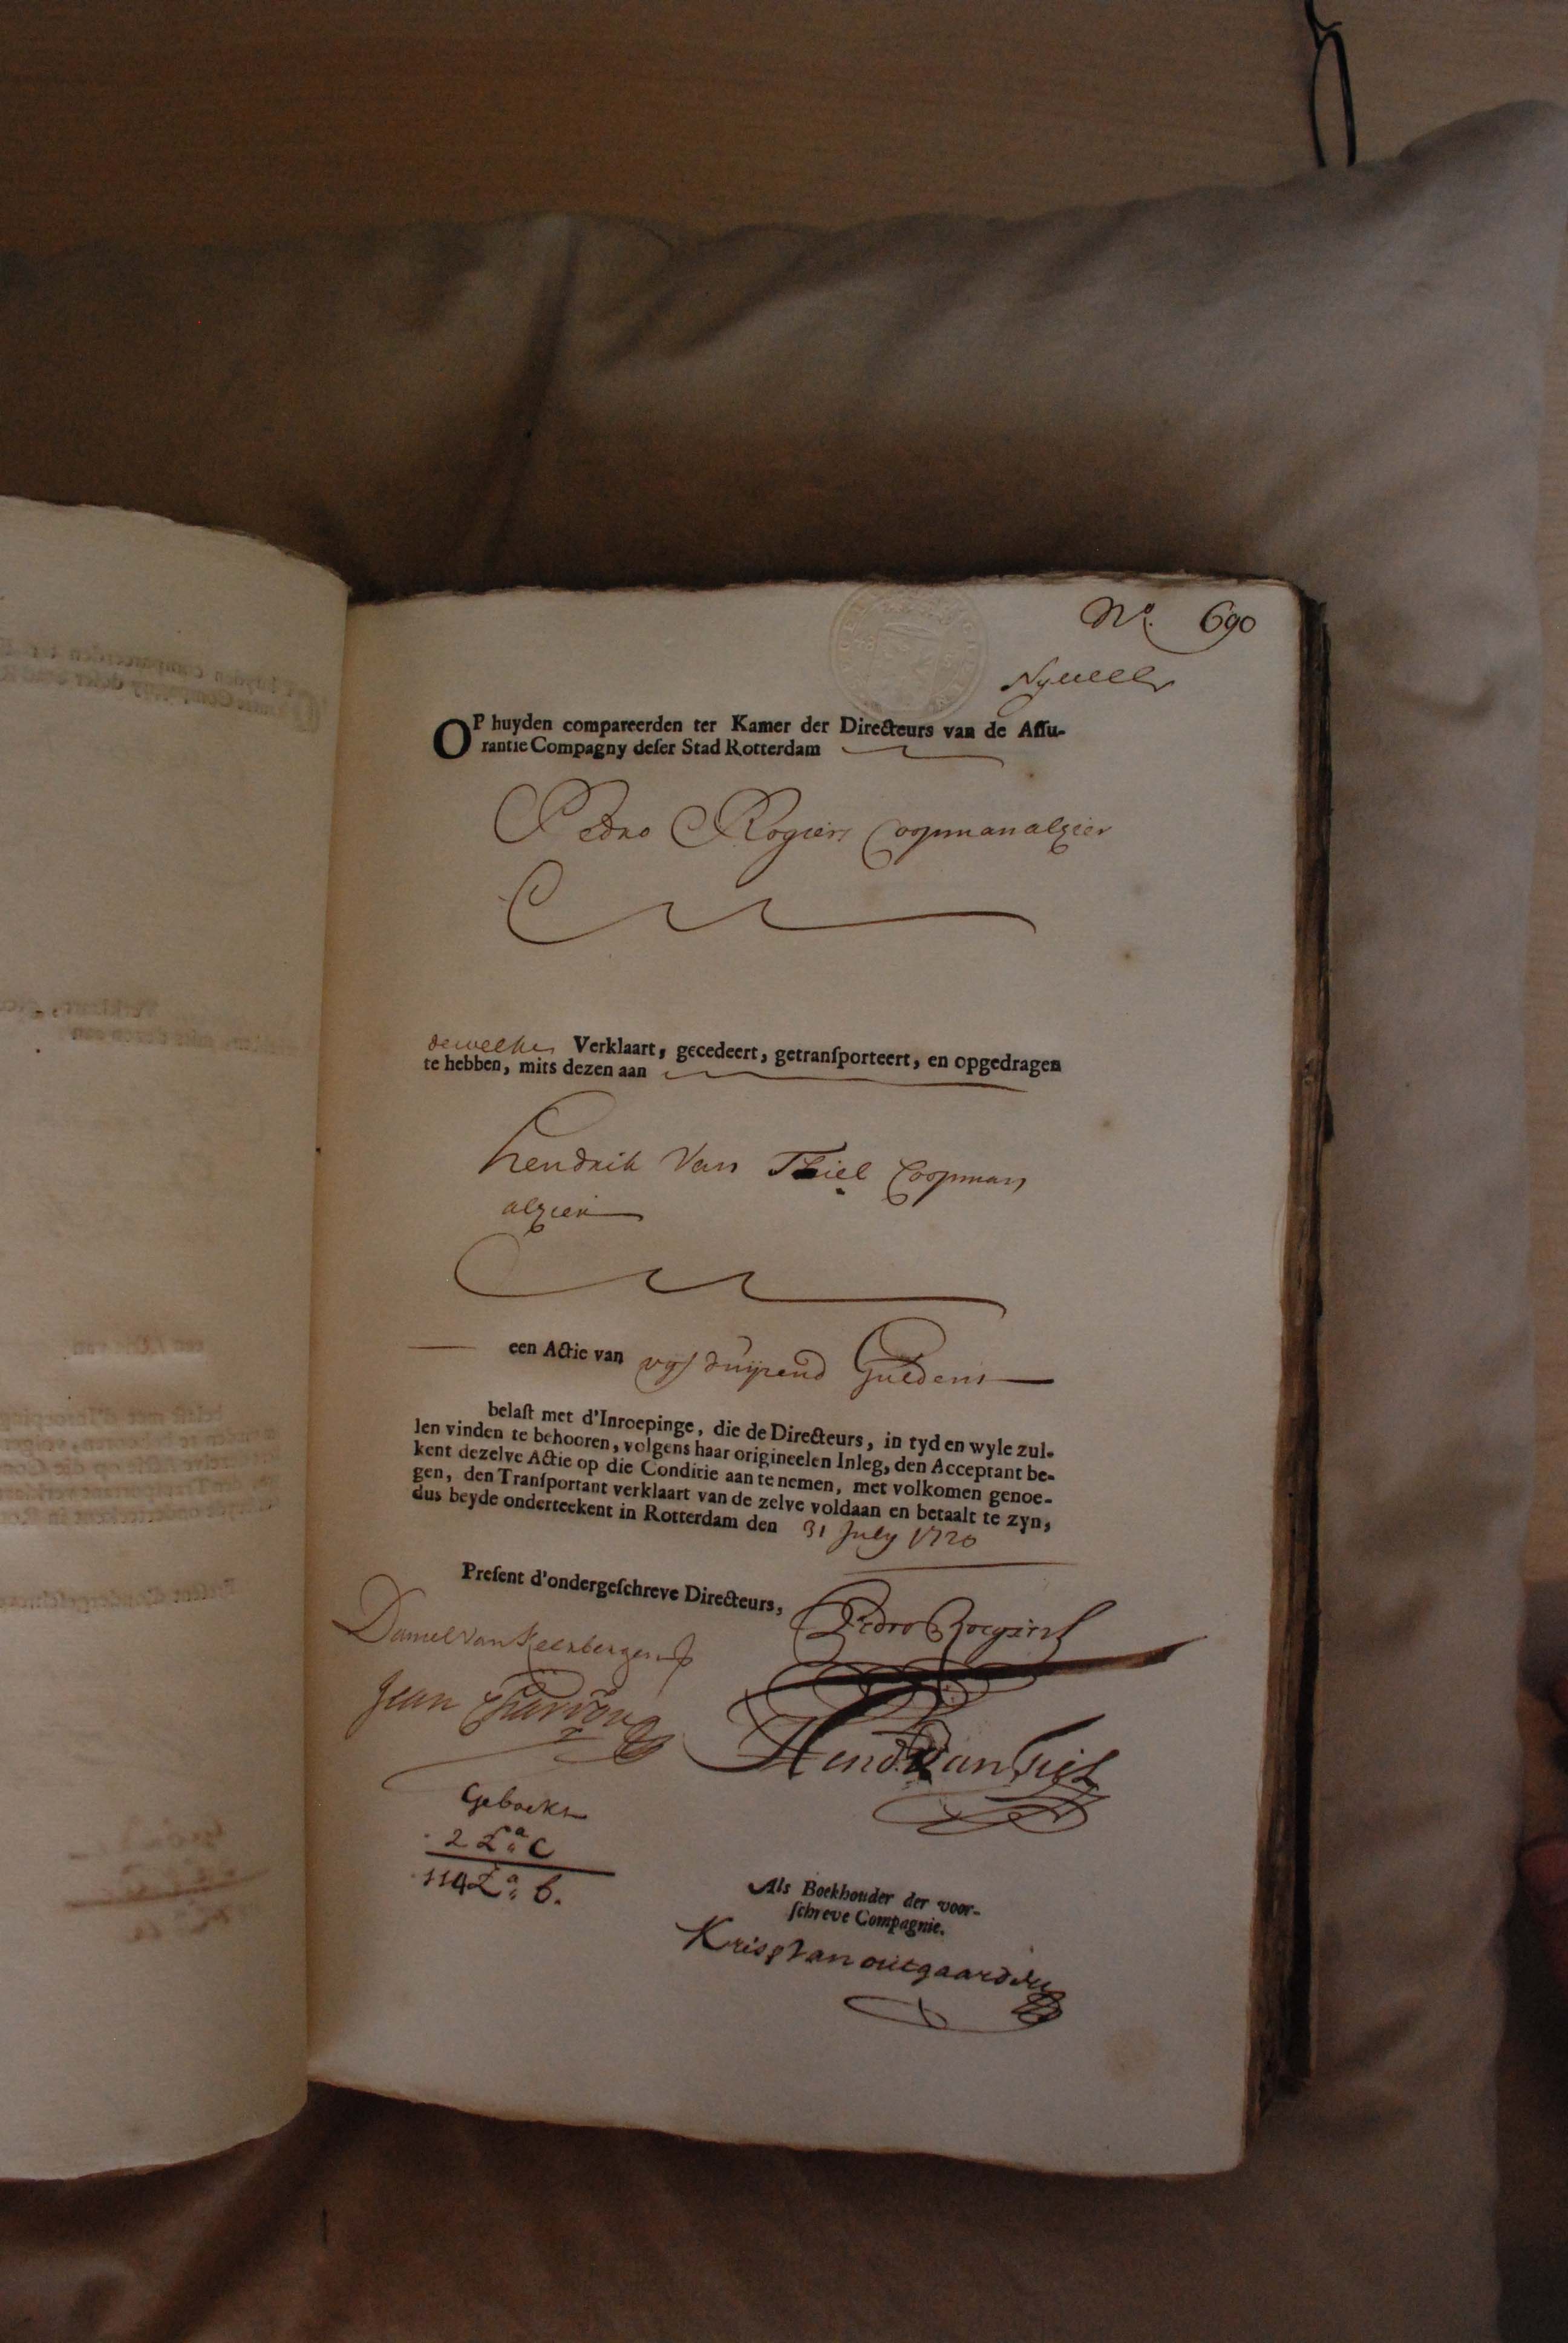 No. 690
Nyuelle
OP huyden compareerden ter Kamer der Directeurs van de Assu-
rantie Compagny deser Stad Rotterdam
Pedro Rogiers Coopman alhier
dewelke Verklaart, gecedeert, getransporteert, en opgedragen
te hebben, mits dezen aan
hendrik Van Thiel Coopman
alhier
een Actie van vyf duysend Guldens
belast met d'Inroepinge, die de Directeurs, in tyd en wyle zul-
len vinden te behooren, volgens haar origineelen Inleg, den Acceptant be-
kent dezelve Actie op die Conditie aan te nemen, met volkomen genoe-
gen, den Transportant verklaart van de zelve voldaan en betaalt te zyn,
dus beyde onderteekent in Rotterdam den 31 July 1720
Present d'ondergeschreve Directeurs,
Pedro Rogiers
Daniel van
Jean
Hend. Van Tiel
Geboekt
2 La. C
114 La. b.
Als Boekhouder der voor-
schreve Compagnie.
Krisp Van outgaarden